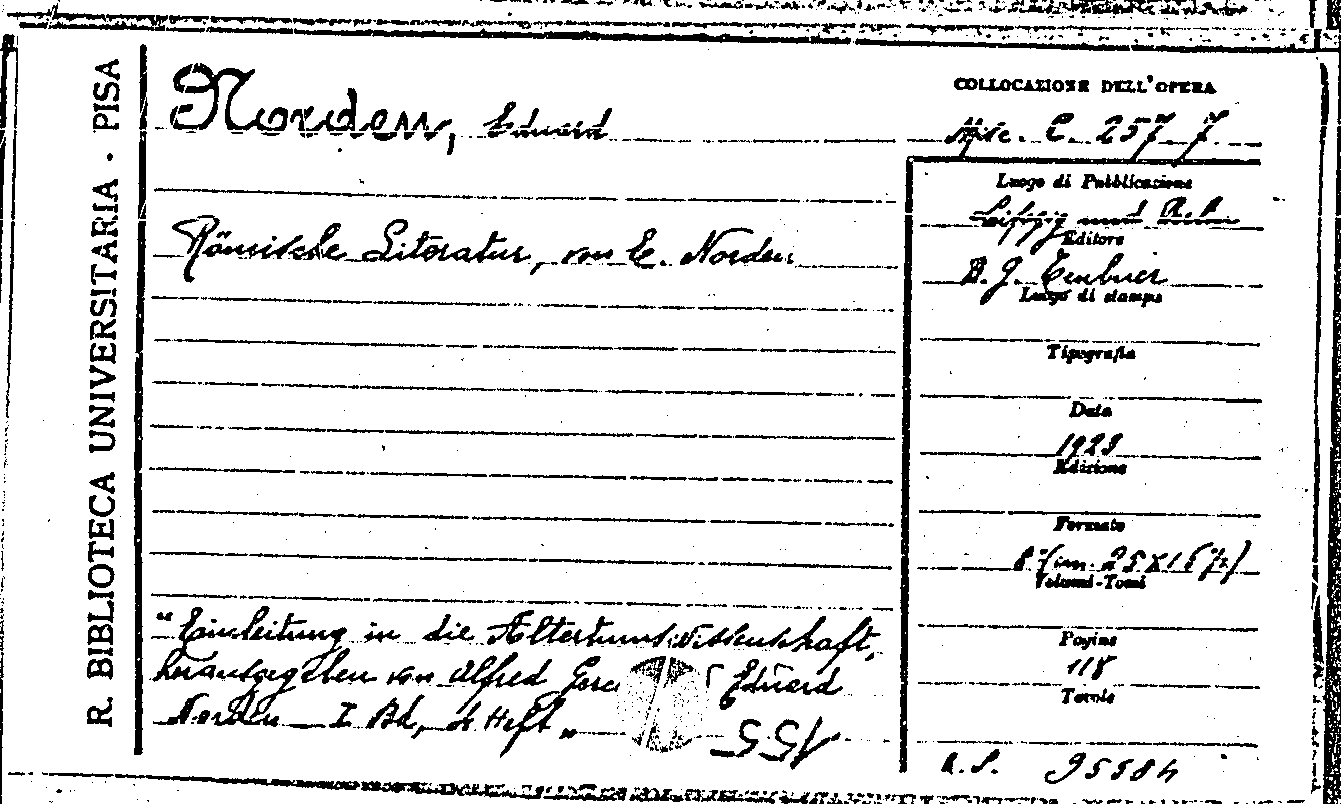 R. BIBLIOTECA UNIVERSITARIA · PISA
Norden, Eduard
Römische Literatur, von E. Norden
"Einleitung in die Altertumswissenschaft,
herausgegeben von Alfred Eduard
Norden — I Bd, 4 Heft"
155
COLLOCAZIONE DELL'OPERA
Misc. C. 257 7
Luogo di Pubblicazione
Leipzig und
Editore
B. G. Teubner
Luogo di stampa
Tipografia
Data
1923
Edizione
Formato
8° (cm. 25X16½)
Volumi-Tomi
Pagine
118
Tavole
95584